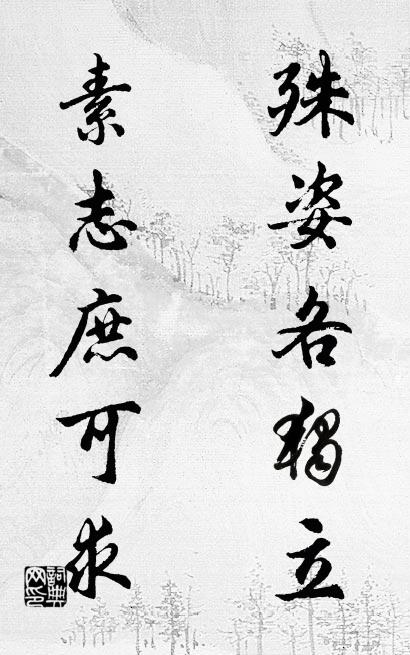 殊姿各獨立
素志庶可求
詞典網